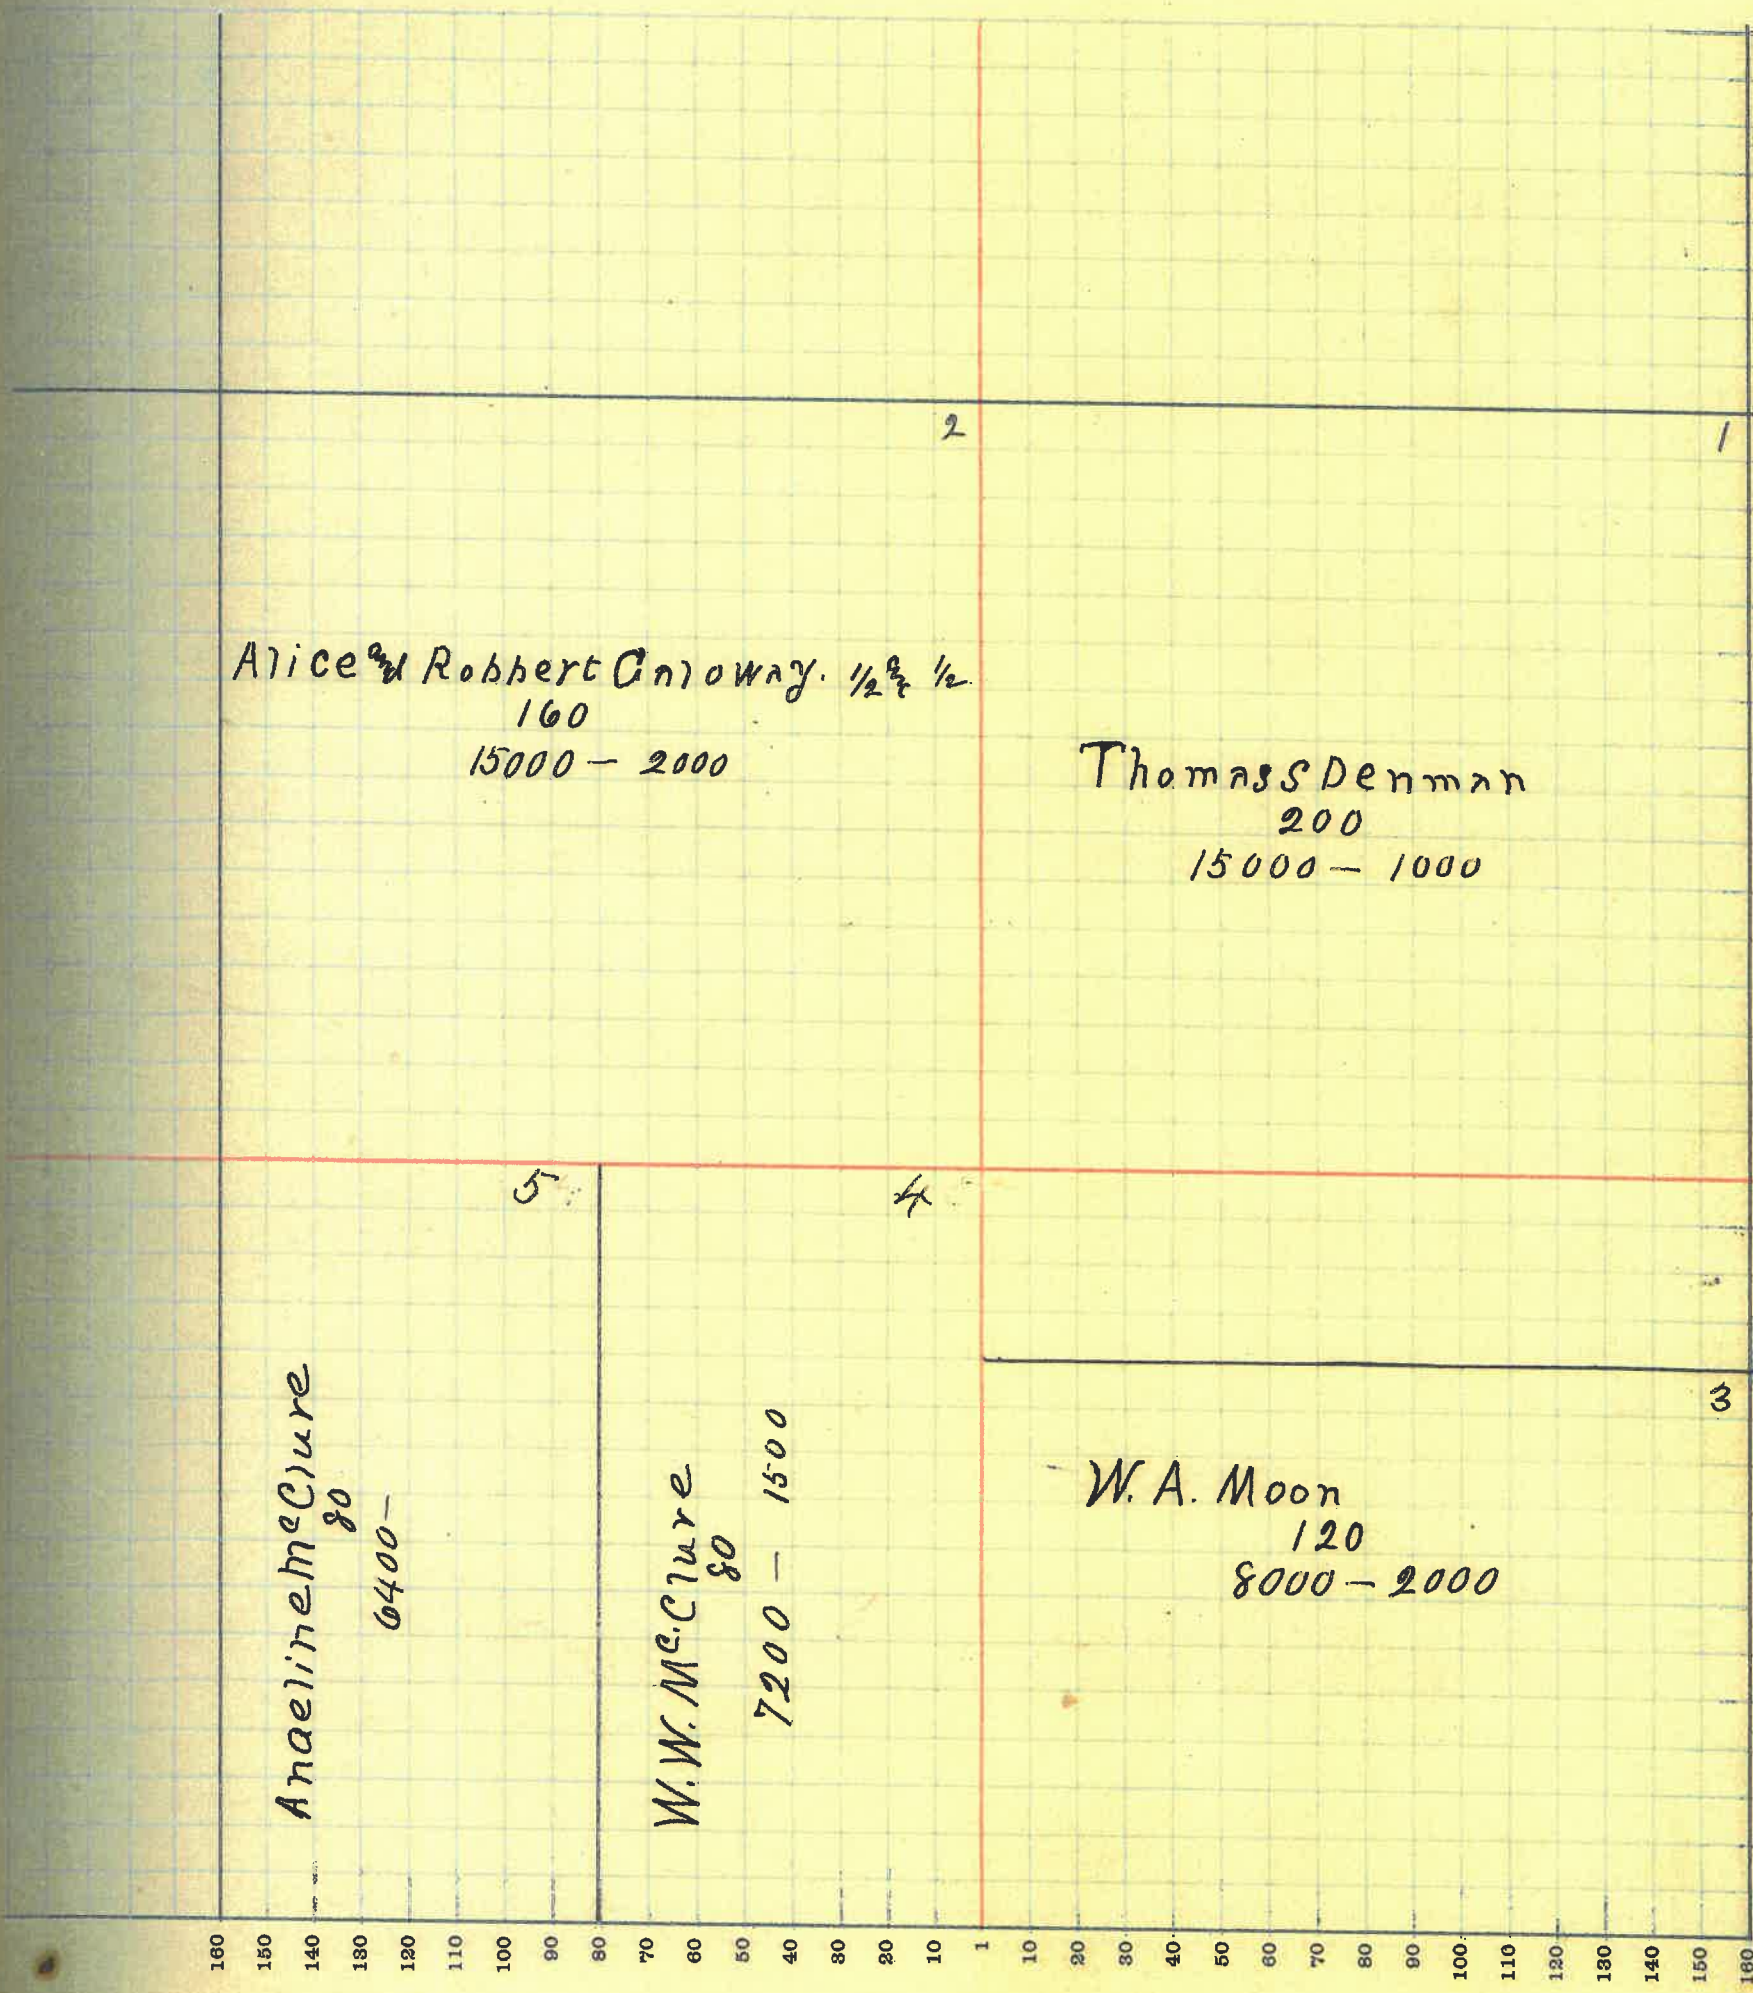 2
1
Alice and Robbert Caloway. 1/2 & 1/2
160
15000 – 2000
Thomas S Denman
200
15000 – 1000
5
4
3
Anaeline McClure
80
6400 –
W. W. Mc. Clure
80
7200 – 1500
W. A. Moon
120
8000 – 2000
160 150 140 130 120 110 100 90 80 70 60 50 40 30 20 10 1 10 20 30 40 50 60 70 80 90 100 110 120 130 140 150 160